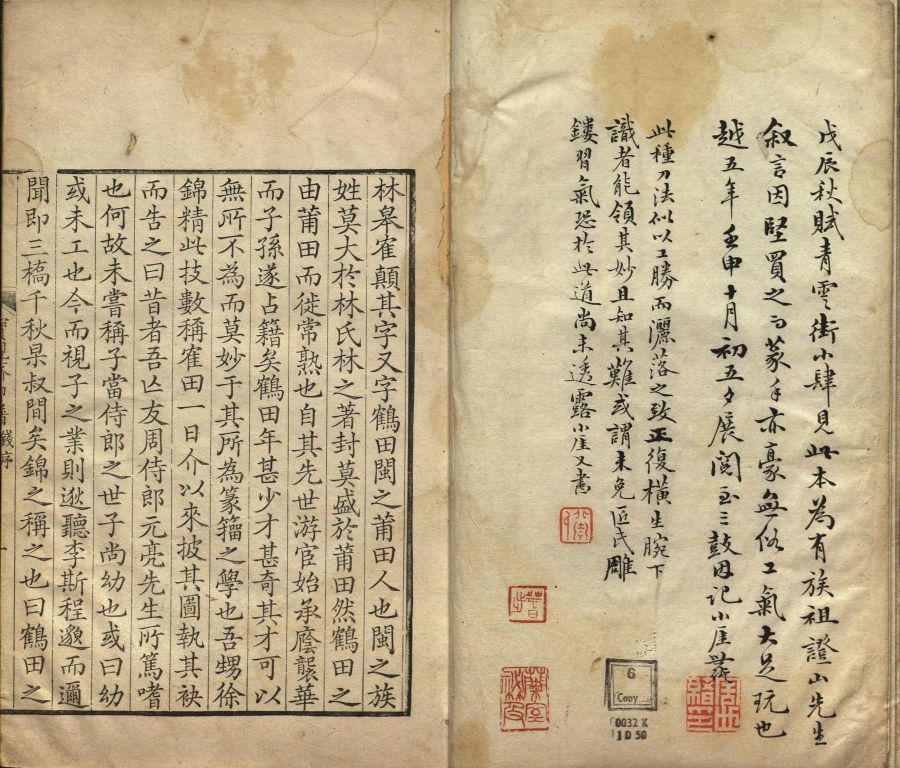 戊辰秋賦青雲街小肆見此本為有族祖證山先生
叙言因堅買之而篆手亦豪無俗工氣大足玩也
越五年壬申十月初五夕展閱至三鼓因記小崖
此種刀法似以工勝而灑落之致正復橫生腕下
識者能領其妙且知其難或謂未免匠氏雕
鏤習氣恐於此道尚未透露小崖又書
6
Copy
0032 K
1 D 50
林皋寉顛其字又字鶴田閩之莆田人也閩之族
姓莫大於林氏林之著封莫盛於莆田然鶴田之
由莆田而徙常熟也自其先世游宦始承廕襲華
而子孫遂占籍矣鶴田年甚少才甚奇其才可以
無所不為而莫妙于其所為篆籀之學也吾甥徐
錦精此技數稱寉田一日介以來披其圖執其袂
而告之曰昔者吾亾友周侍郎元亮先生所篤嗜
也何故未嘗稱子當侍郎之世子尚幼也或曰幼
或未工也今而視子之業則逖聽李斯程邈而邇
聞即三橋千秋杲叔間矣錦之稱之也曰鶴田之
譜 錢序 一